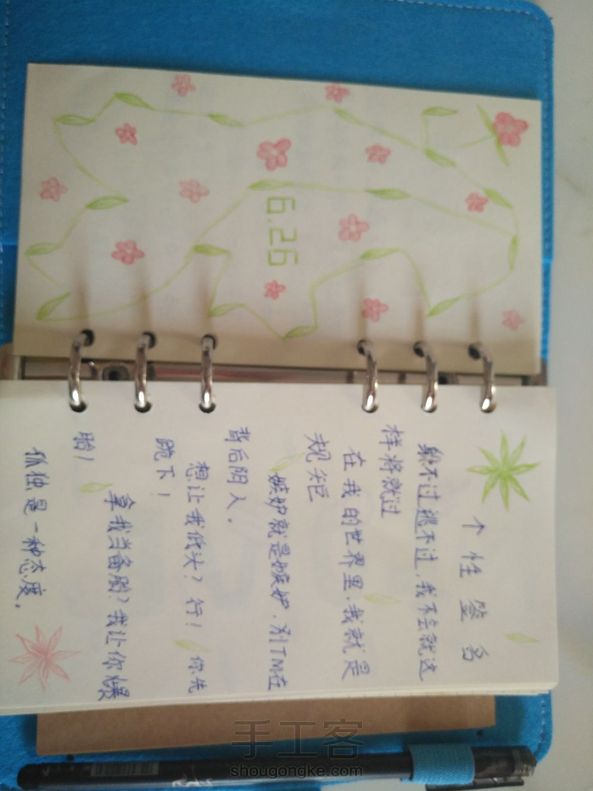 6.26
个性签名
躲不过逃不过,我不会就这
样将就过
在我的世界里,我就是
规矩
嫉妒就是嫉妒,别TM在
背后阴人。
想让我低头?行!你先
跪下!
拿我当备胎?我让你爆
胎!
孤独是一种态度。
手工客
shougongke.com